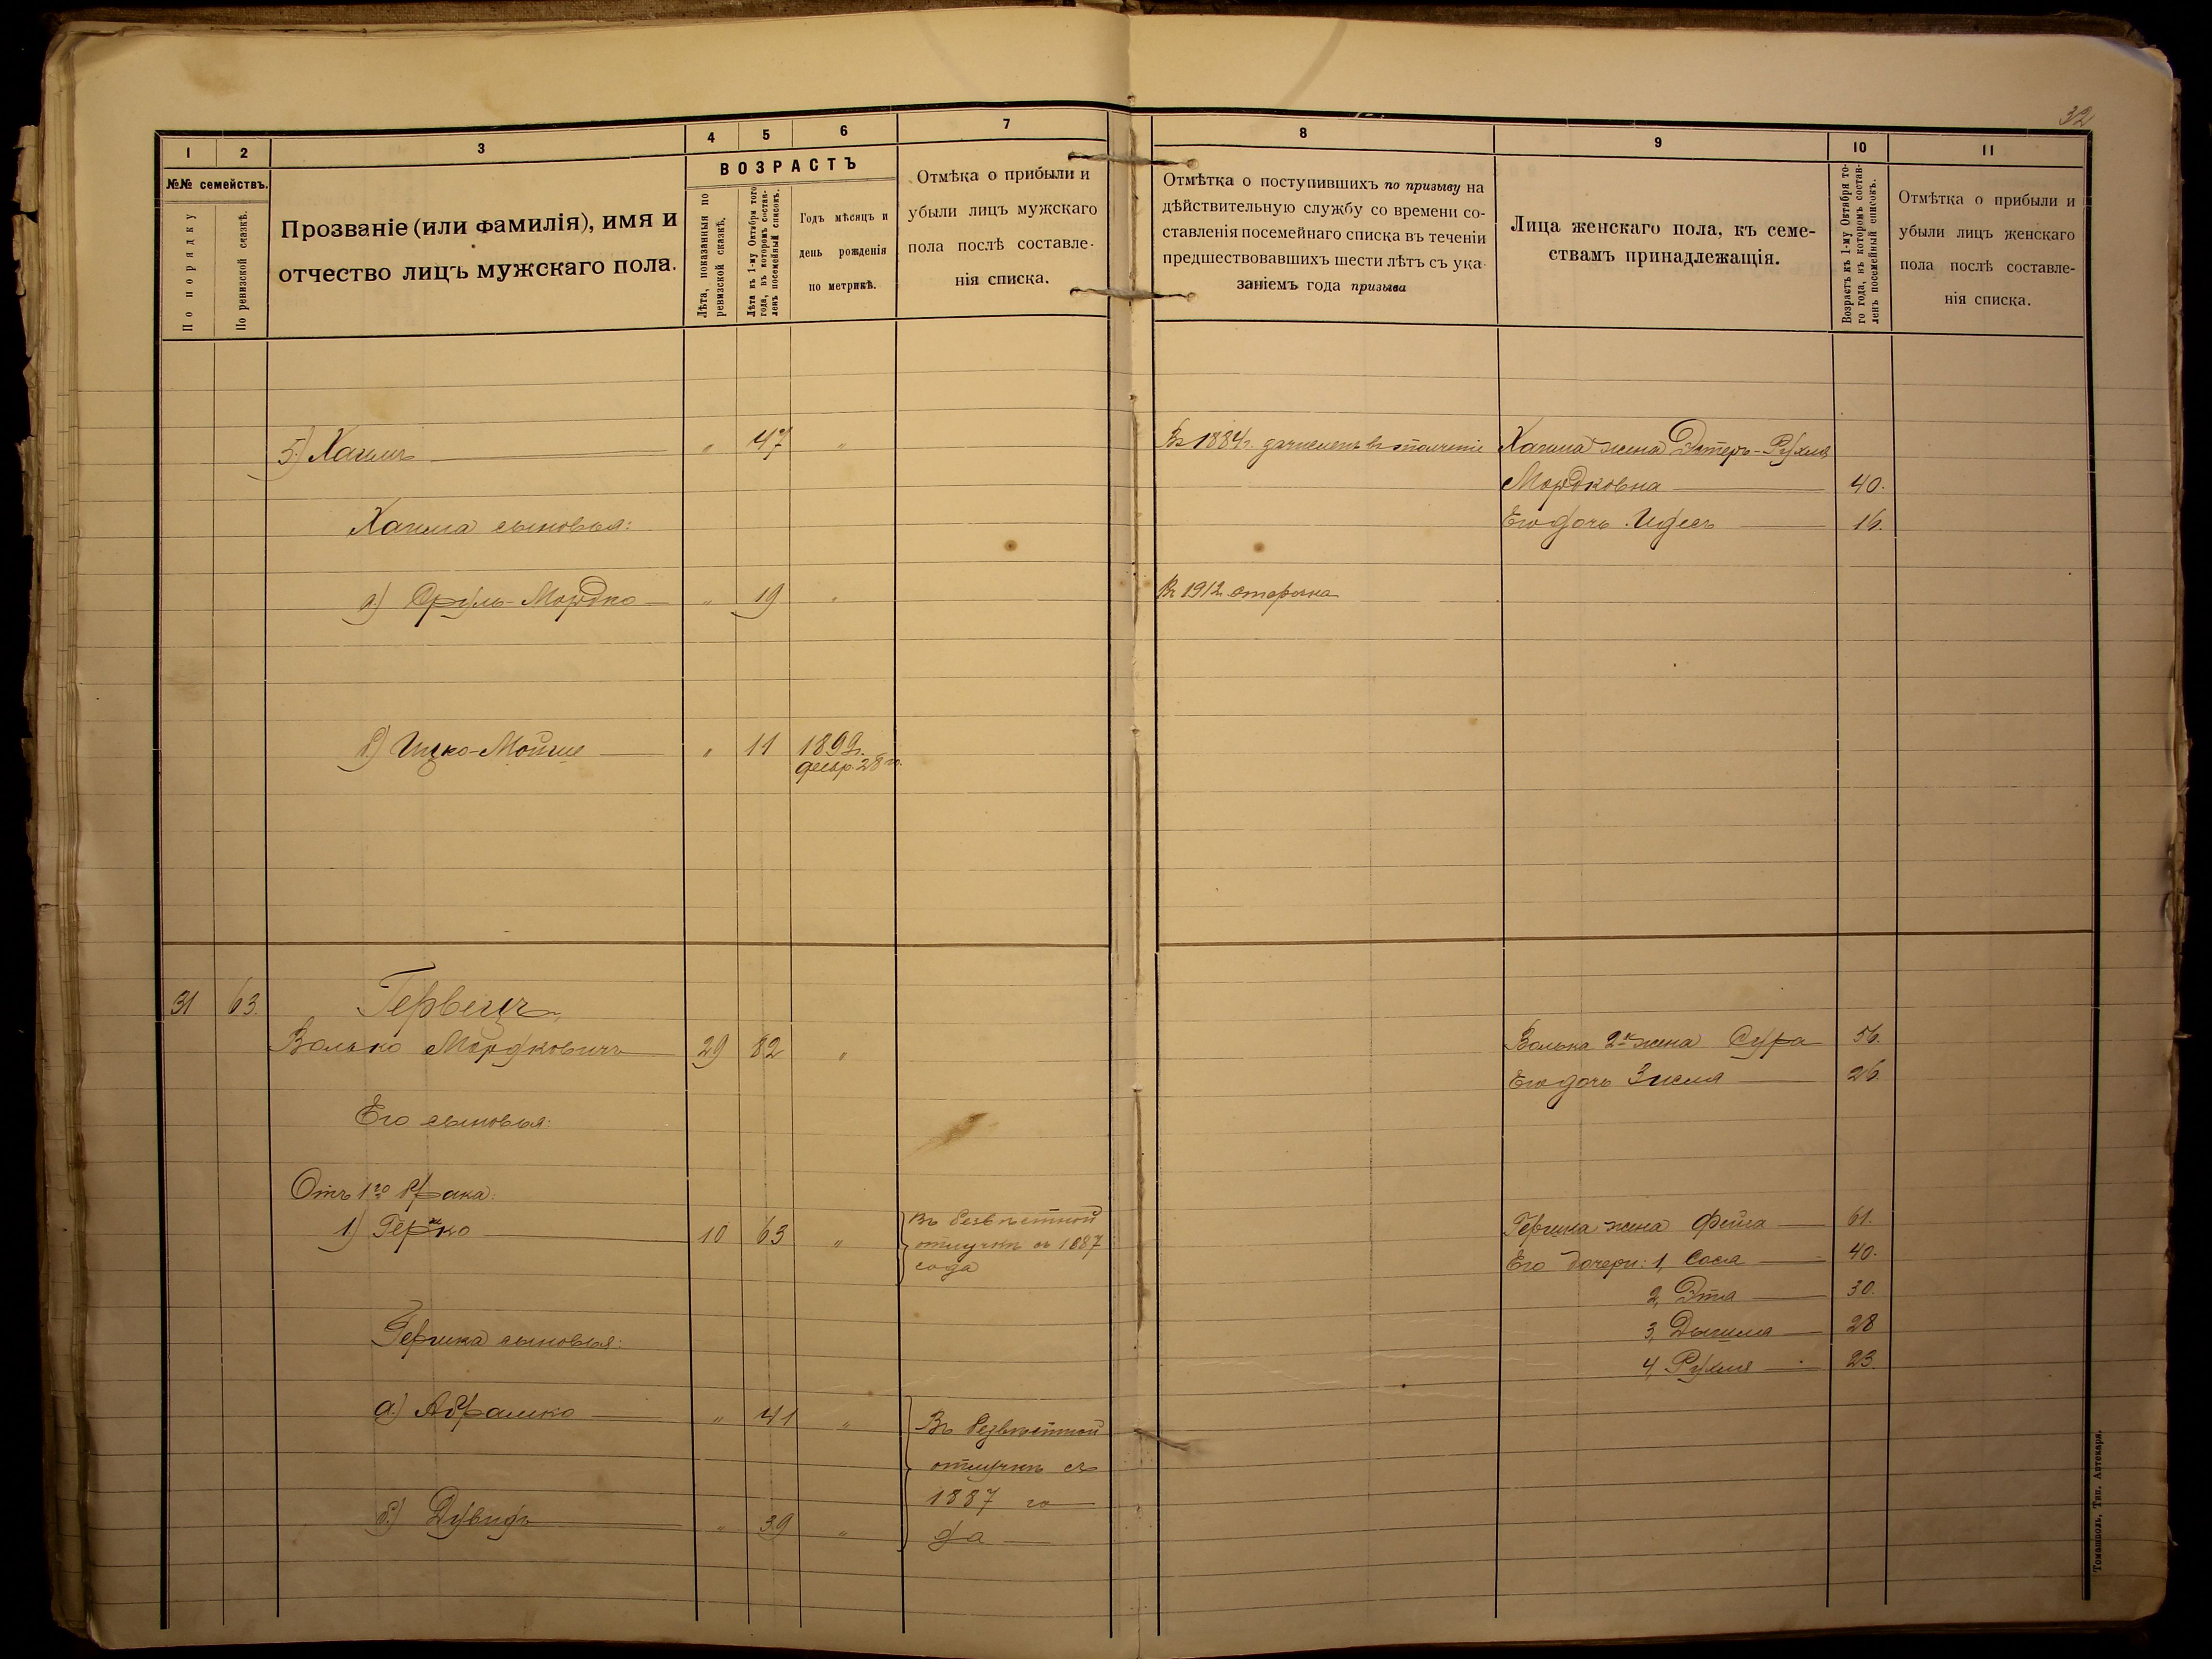 32
1 2 3 4 5 6 7 8 9 10 11
№№ семействъ.
По порядку
По ревизской сказкѣ.
Прозваніе (или фамилія), имя и
отчество лицъ мужскаго пола.
ВОЗРАСТЪ
Лѣта, показанныя по
ревизской сказкѣ.
Лѣта къ 1-му Октября того
года, въ которомъ состав-
ленъ посемейный списокъ.
Годъ мѣсяцъ и
день рожденія
по метрикѣ.
Отмѣка о прибыли и
убыли лицъ мужскаго
пола послѣ составле-
нія списка.
Отмѣтка о поступившихъ по призыву на
дѣйствительную службу со времени со-
ставленія посемейнаго списка въ теченіи
предшествовавшихъ шести лѣтъ съ ука-
заніемъ года призыва
Лица женскаго пола, къ семе-
ствамъ принадлежащія.
Возрастъ къ 1-му Октября то-
го года, въ которомъ состав-
ленъ посемейный списокъ.
Отмѣтка о прибыли и
убыли лицъ женскаго
пола послѣ составле-
нія списка.
5) Хаимъ — " 47 " Въ 1884г. зачисленъ въ ополченіе Хаима жена Эстеръ-Рухля
Мордковна — 40.
Хаима сыновья: Его дочь Идесъ — 16.
а) Сруль-Мордко — " 19 " Въ 1912 отсрочка
б) Ицко-Мойше — " 11 1899г.
декбр. 28 го.
31 63. Гервецъ
Волько Мордковичъ — 29 82 " Волька 2я жена Сура 56.
Его дочь Зисля — 26.
Его сыновья:
Отъ 1го брака:
1) Гершко — 10 63 " Въ безвѣстной
отлучкѣ съ 1887
года
Гершка жена Фейга — 61.
Его дочери: 1, Сося — 40.
2, Эта — 30.
Гершка сыновья: 3, — 28
4, Рухля — 23.
а) Абрамко — " 41 " Въ безвѣстной
отлучкѣ съ
1887 го
б) Дувидъ — " 39 " да —
Томашполь, Тип. Аптекаря.